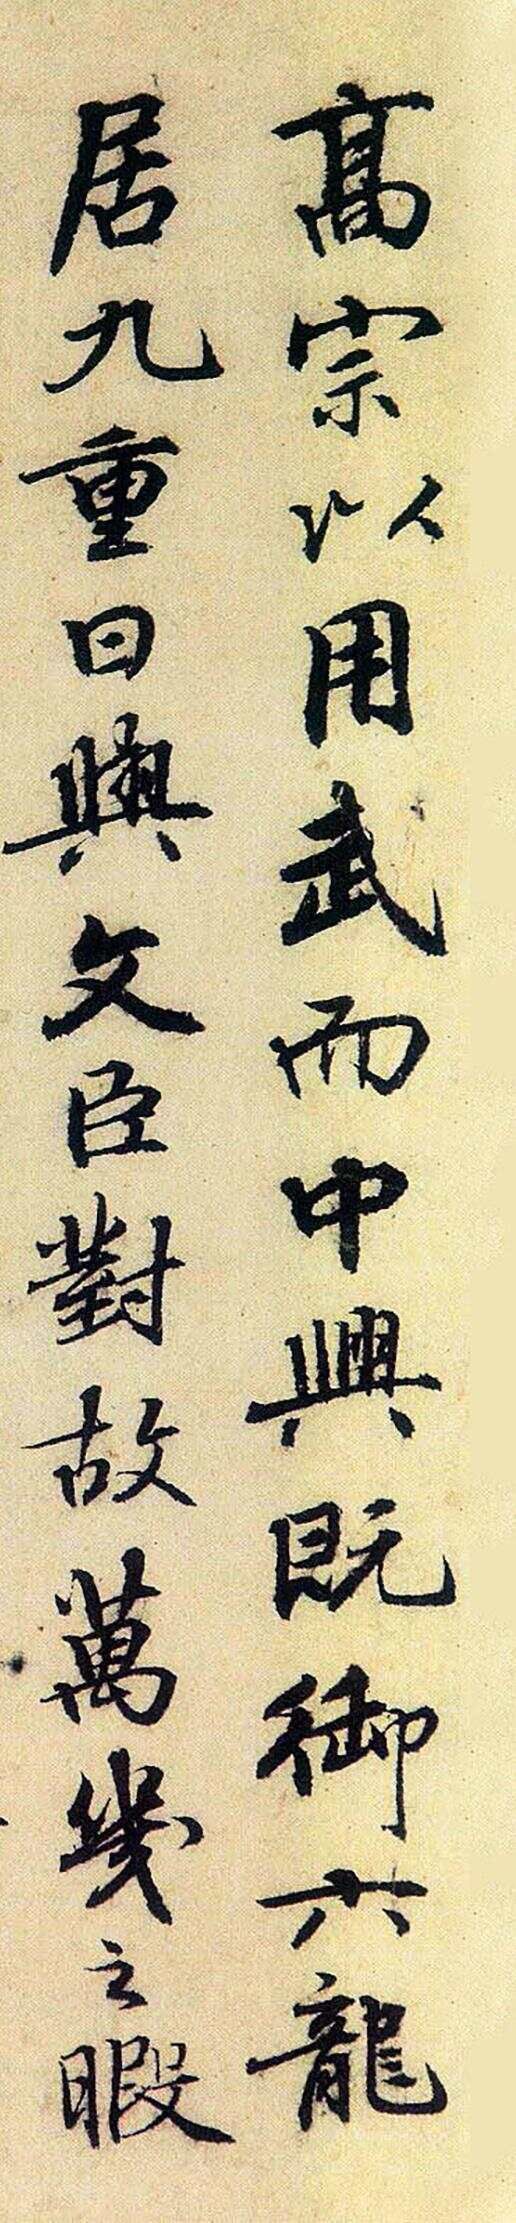 高宗以用武而中興既御六龍
居九重日與文臣對故萬幾之暇